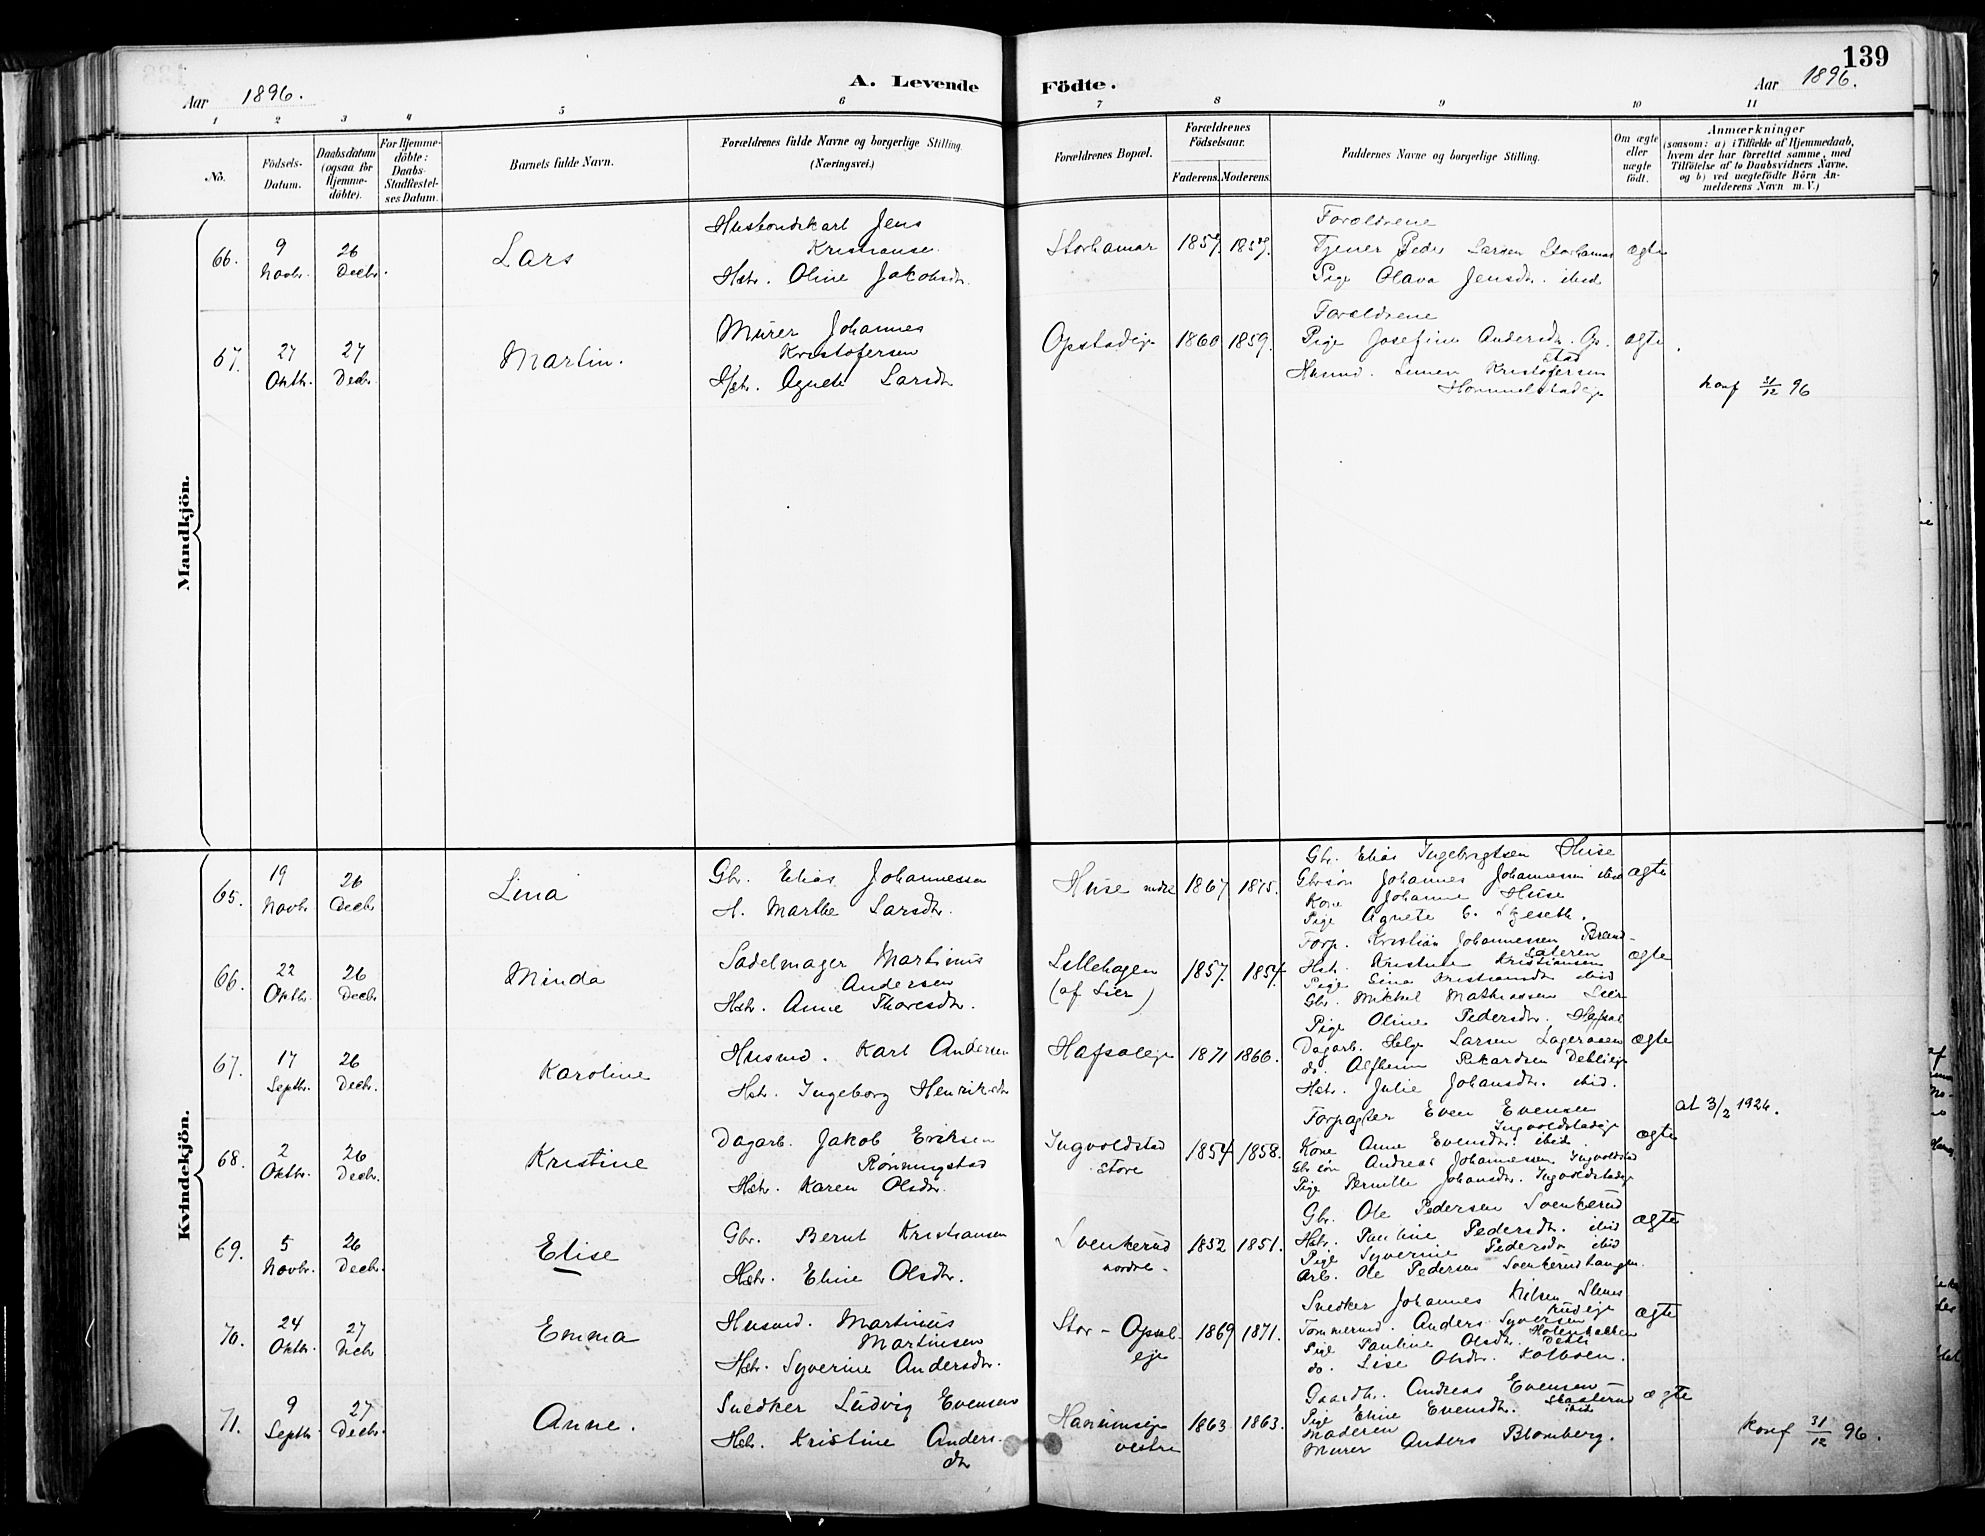 139
Aar 1896.
A. Levende Födte.
Aar 1896.
1 2 3 4 5 6 7 8 9 10 11
No.
Födsels-Datum.
Daabsdatum (ogsaa for Hjemmedöbte).
For Hjemmedöbte: Daabs-Stadfæstelses Datum.
Barnets fulde Navn.
Forældrenes fulde Navne og borgerlige Stilling (Næringsvei.)
Forældrenes Bopæl.
Forældrenes Födselsaar.
Faderens. Moderens.
Faddernes Navne og borgerlige Stilling.
Om ægte eller uægte födt.
Anmærkninger
(saasom: a) i Tilfælde af Hjemmedaab,
hvem der har forrettet samme, med
Tilföielse af to Daabsvidners Navne.
og b) ved uægtefödte Börn Anmelderens Navn m. V.)
Mandkjön.
66.
9 Novbr.
26 Decbr.
Lars
Husbondskarl Jens
Kristiansen
Hstr. Oline Jakobsdr.
Storhamar
Forældrene
Tjener Peder Larsen Storhamar
Pige Olava Jensdr. ibid
ægte
67.
27 Oktbr.
27 Decbr.
Martin.
Murer Johannes
Kristofersen
Hstr. Agnete Larsdr
Opstadeje
1860 1859.
Forældrene
Pige Josefine Andersdr. Opstad
Husmd. Simen Kristofersen
Hommelstadeje
ægte
konf 31/12 96
Kvindekjön.
65.
19 Novbr.
26 Decbr
Lina
Gbr. Elias Johannessen
H. Marthe Larsdr.
Huse nedre
1867 1875.
Gbr. Elias Ingebrigtsen Huse
Gbrsön Johannes Johannessen ibid
Kone Johanne Huse
Pige Agnete
ægte
66.
22 Oktbr.
26 Decbr
Minda
Sadelmager Martinus
Andersen
Hstr. Anne Thoresdr.
Lillehagen
(af Lier)
1857. 1854.
Forp. Kristian Johannessen Brand-
sæteren
Hstr. Kristine Kristiansen
Pige Lina Kristiansdr ibid
Gbr. Mikkel Mathiassen Lier
ægte
67.
17 Septbr.
26 Decbr.
Karoline
Husmd. Karl Andersen
Hstr. Ingeborg Henriksdr
Hafsaleje
1871 1866.
Pige Oline Pedersdr. Hafsal
Dagarb. Helge Larsen Lageraaen
do. Alfheim Rikardsen Dehlieje
Hstr. Julie Johansdr. ibid.
ægte
68.
2 Oktbr.
26 Decbr.
Kristine
Dagarb. Jakob Eriksen
Rönningstad
Hstr. Karen Olsdr.
Ingvoldstad
store
1854 1858.
Forpagter Even Evensen
Ingvoldstadeje
Kone Anne Evensdr. ibid
Gbrsön Andreas Johannessen Ingvoldstad
Pige Pernille Johansdr. Ingvoldstadeje
ægte
at 3/2 1926.
69.
5 Novbr.
26 Decbr.
Elise
Gbr. Bernt Kristiansen
Hstr. Eline Olsdr.
Svenkerud
nordre.
1852 1851.
Gbr. Ole Pedersen Svenkerud
Hstr. Pauline Pedersdr. ibid
Pige Syverine Pedersdr ibid
Arb. Ole Pedersen Svenkerudhaugen.
ægte
70.
24 Oktbr.
27 Decbr
Emma
Husmd. Martinus
Martinsen
Hstr. Syverine Andersdr.
Stor-Opsal-
eje
1869 1871.
Snedker Johannes Nilsen Slemsrudeje
Tömmermd. Anders Syversen
Pige Pauline Olsdr. Dehli
do. Lise Olsdr. Kolboen.
ægte
71.
9 Septbr.
27 Decbr.
Anne.
Snedker Ludvig Evensen
Hstr. Kristine Anders-
dr
Hanumseje
vestre
1863 1863.
Gaardbr. Andreas Evensen
Pige Eline Evensdr. ibid
Moderen
Murer Anders Blomberg.
ægte
konf 31/12 96.